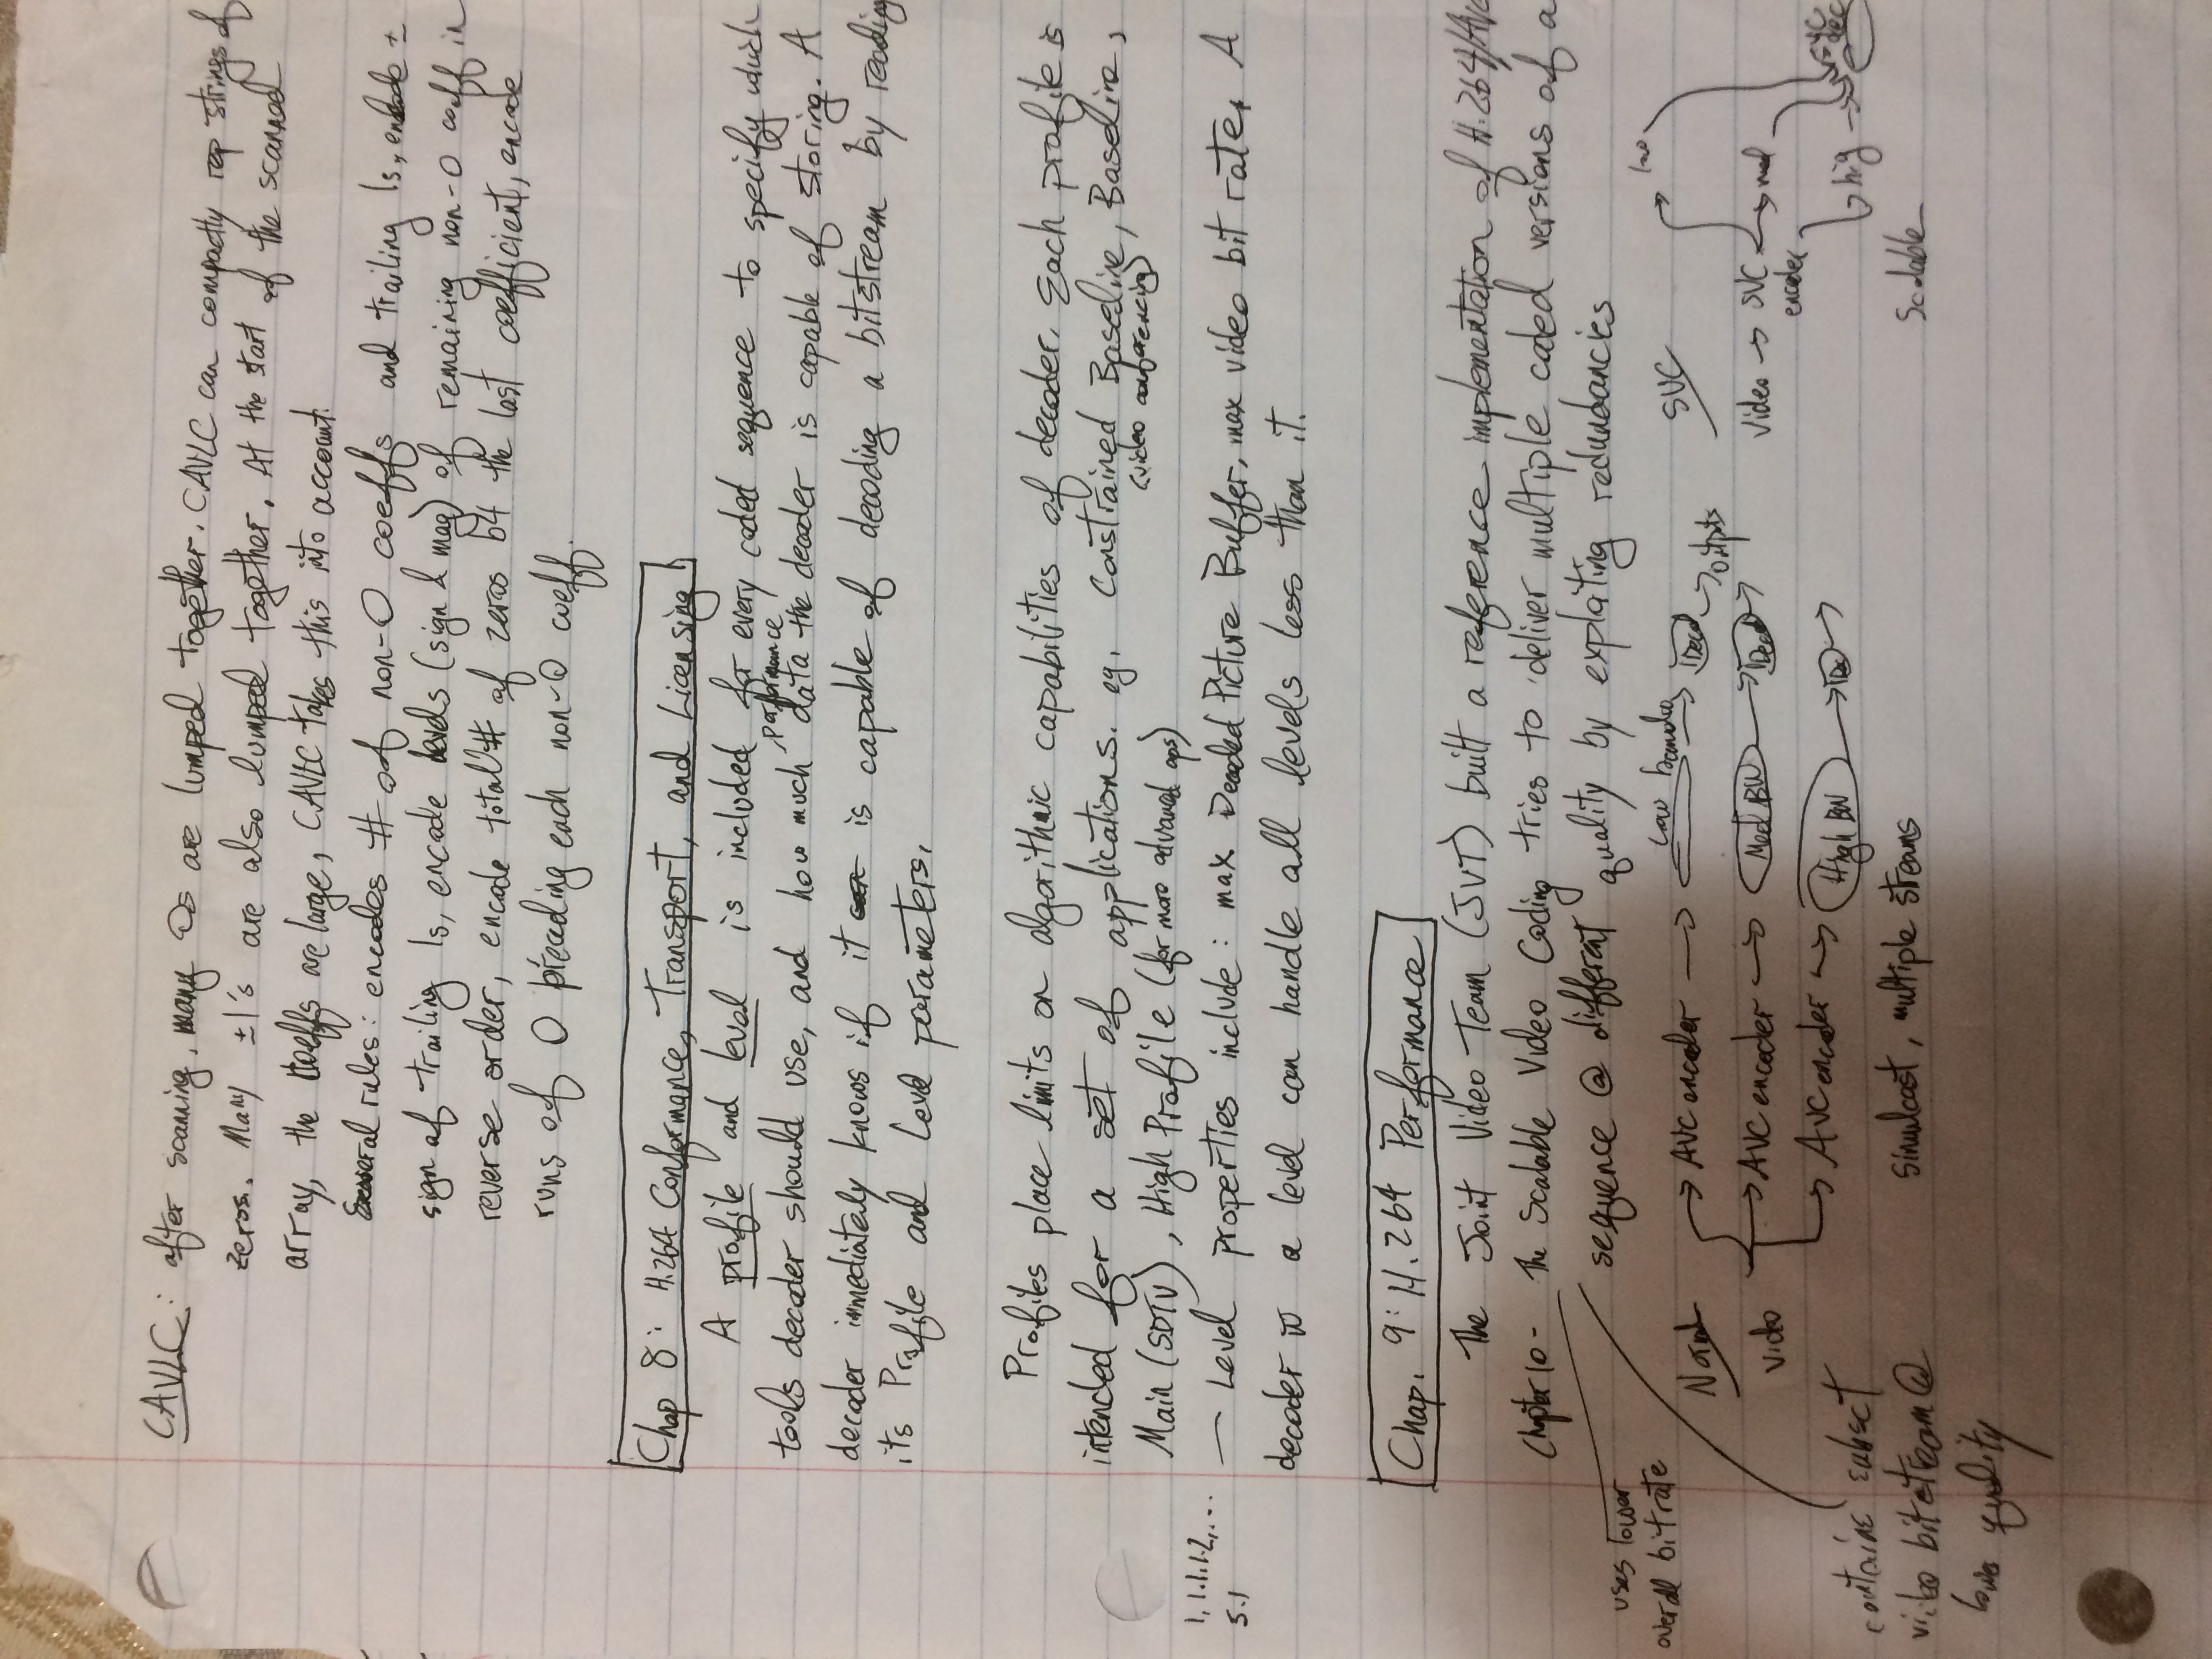 CAVLC: after scanning, many 0s are lumped together. CAVLC can compactly rep strings of
zeros. Many ±1's are also lumped together. At the start of the scanned
array, the coeffs are large, CAVLC takes this into account.
Several rules: encodes # of non-0 coeffs and trailing 1s, encode ±
sign of trailing 1s, encode levels (sign & mag) of remaining non-0 coeff in
reverse order, encode total # of zeros b4 the last coefficient, encode
runs of 0 preceding each non-0 coeff.
Chap 8: H.264 Conformance, Transport, and Licensing
A profile and level is included for every coded sequence to specify which
performance
tools decoder should use, and how much data the decoder is capable of storing. A
decoder immediately knows if it can is capable of decoding a bitstream by reading
its Profile and Level parameters.
Profiles place limits on algorithmic capabilities of decoder. Each profile is
intended for a set of applications. eg. Constrained Baseline, Baseline,
(video conferencing)
Main (SDTV), High Profile (for more advanced aps)
1, 1.1, 1.2, ...
5.1
— Level properties include: max Decoded Picture Buffer, max video bit rate. A
decoder w a level can handle all levels less than it.
Chap. 9: H.264 Performance
The Joint Video Team (JVT) built a reference implementation of H.264/AVC
Chapter 10 - The Scalable Video Coding tries to deliver multiple coded versions of a
sequence @ different quality by exploiting redundancies
uses lower
overall bitrate
Normal
Video
AVC encoder
Low
Decod
outputs
AVC encoder
Med BW
Decod
AVC encoder
High BW
Dec
Simulcast, multiple streams
SVC
Video
SVC
encoder
low
med
hig
SVC
dec
Scalable
contains subset
video bitstream @
lower quality